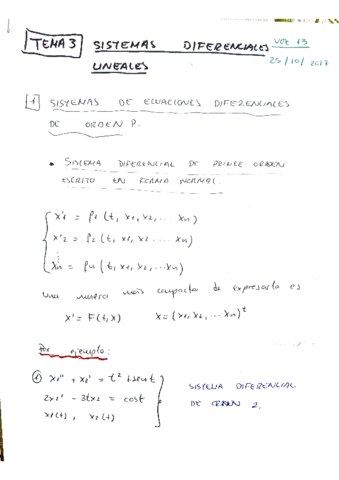 TEMA 3 SISTEMAS DIFERENCIALES
LINEALES
25/10/2017
1 SISTEMAS DE ECUACIONES DIFERENCIALES
DE ORDEN P.
• SISTEMA DIFERENCIAL DE PRIMER ORDEN
ESCRITO EN FORMA NORMAL.
x'1 = f1 (t, x1, x2, ... xn)
x'2 = f2 (t, x1, x2 .... xn)
⋮
x'n = fn (t, x1, x2, ... xn)
una manera más compacta de expresarlo es
x' = F(t,x) x = (x1, x2, ... xn)^t
Por ejemplo:
① x1'' + x2' = t² + sent
2x2' - 3tx2 = cost
x1(t), x2(t)
SISTEMA DIFERENCIAL
DE ORDEN 2.